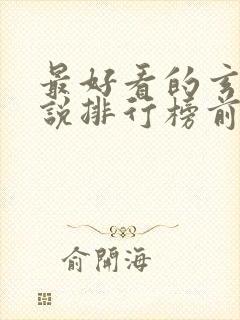 最好看的玄
說排行榜前
俞開海